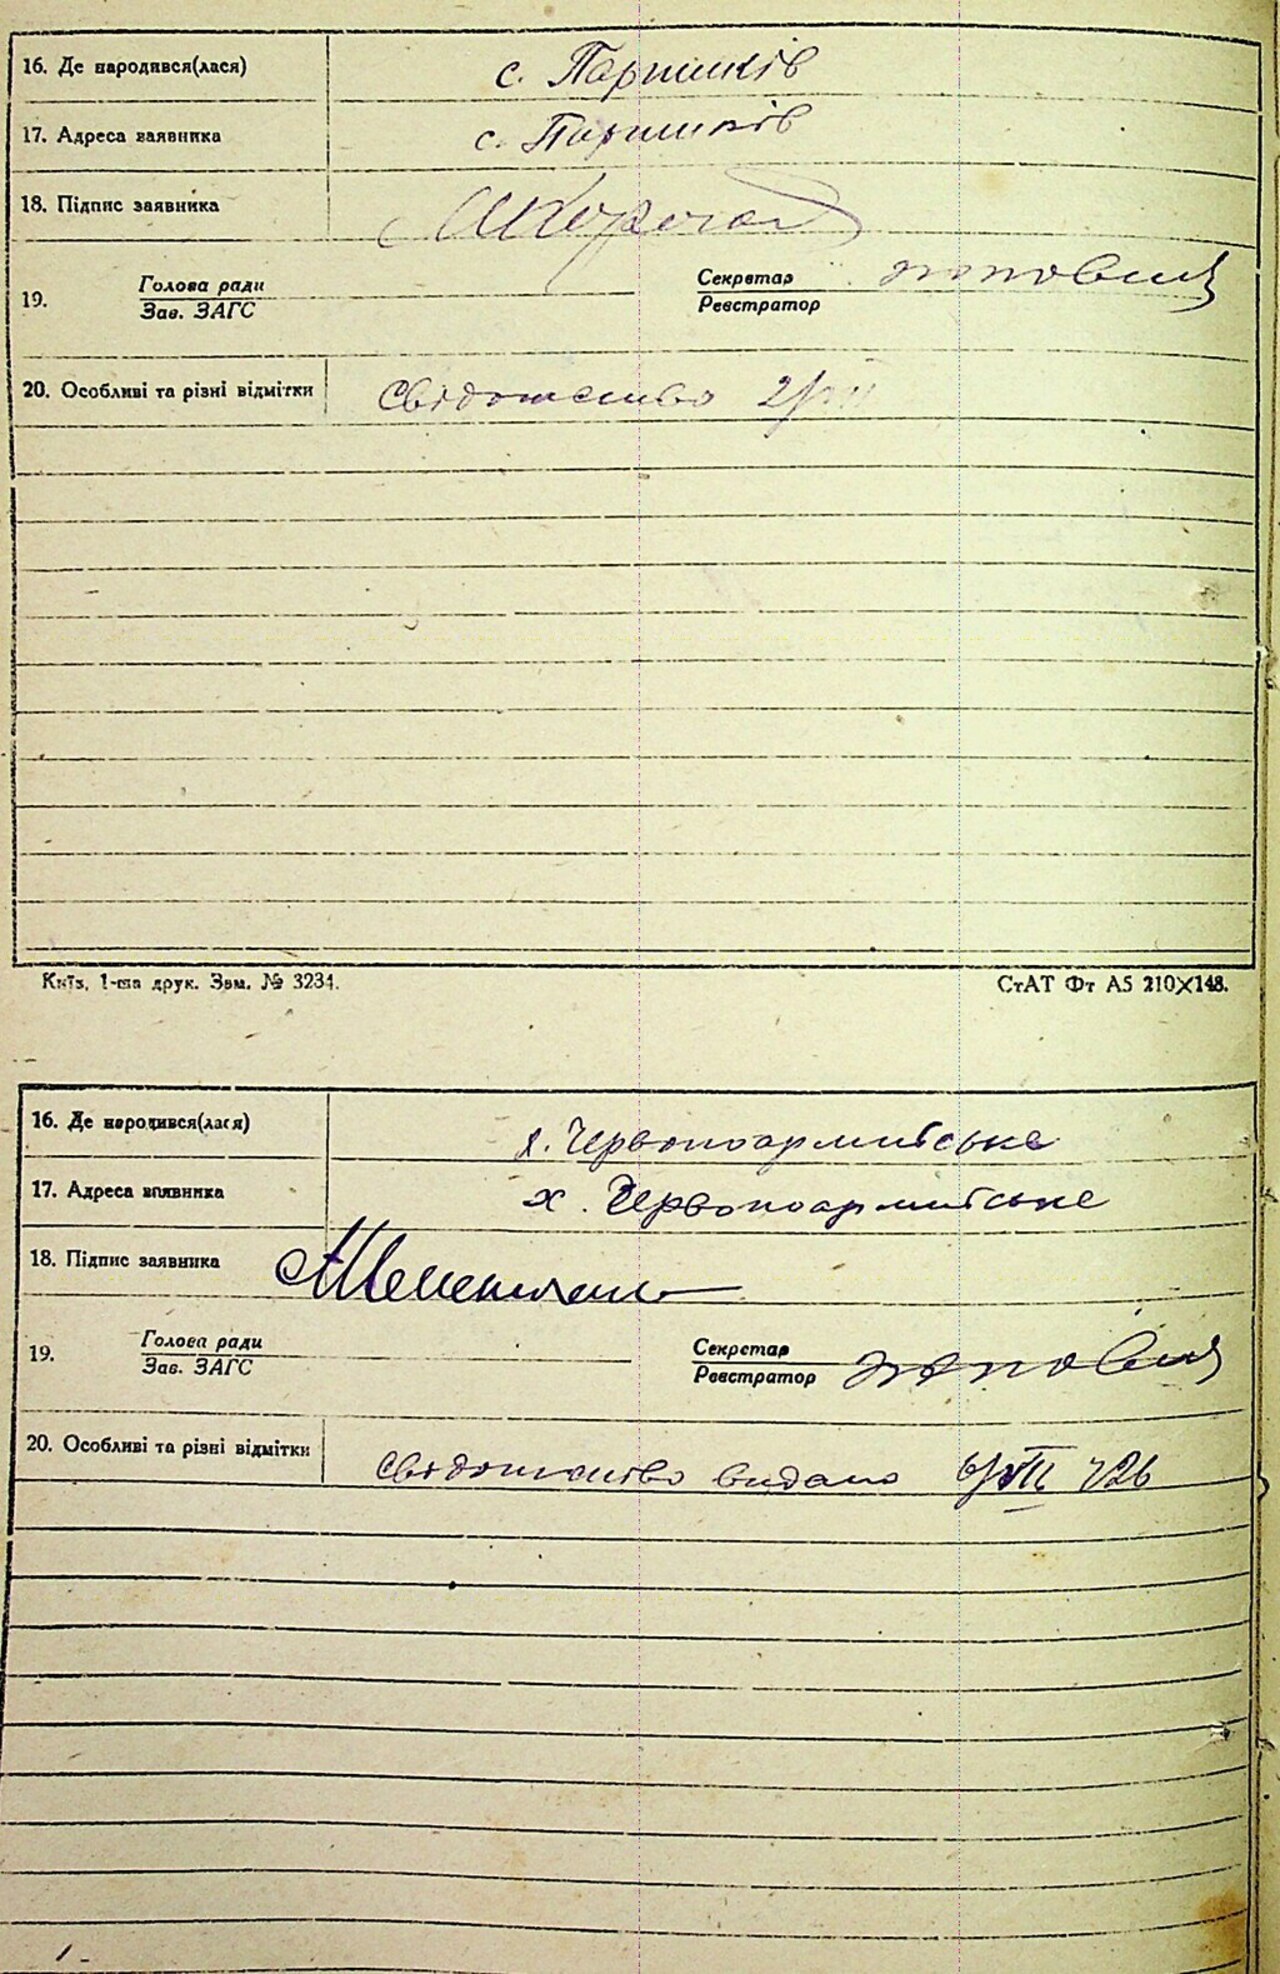 16. Де народився(лася) с. Паришків
17. Адреса заявника с. Паришків
18. Підпис заявника
19. Голова ради Секретар
Зав. ЗАГС Реєстратор
20. Особливі та різні відмітки Свідотство 2/VII
Київ, 1-ша друк. Зам. № 3234. СтАТ Фт А5 210×148.
16. Де народився(лася) х. Червоноармійське
17. Адреса заявника х. Червоноармійське
18. Підпис заявника
19. Голова ради Секретар
Зав. ЗАГС Реєстратор
20. Особливі та різні відмітки Свідотство видано